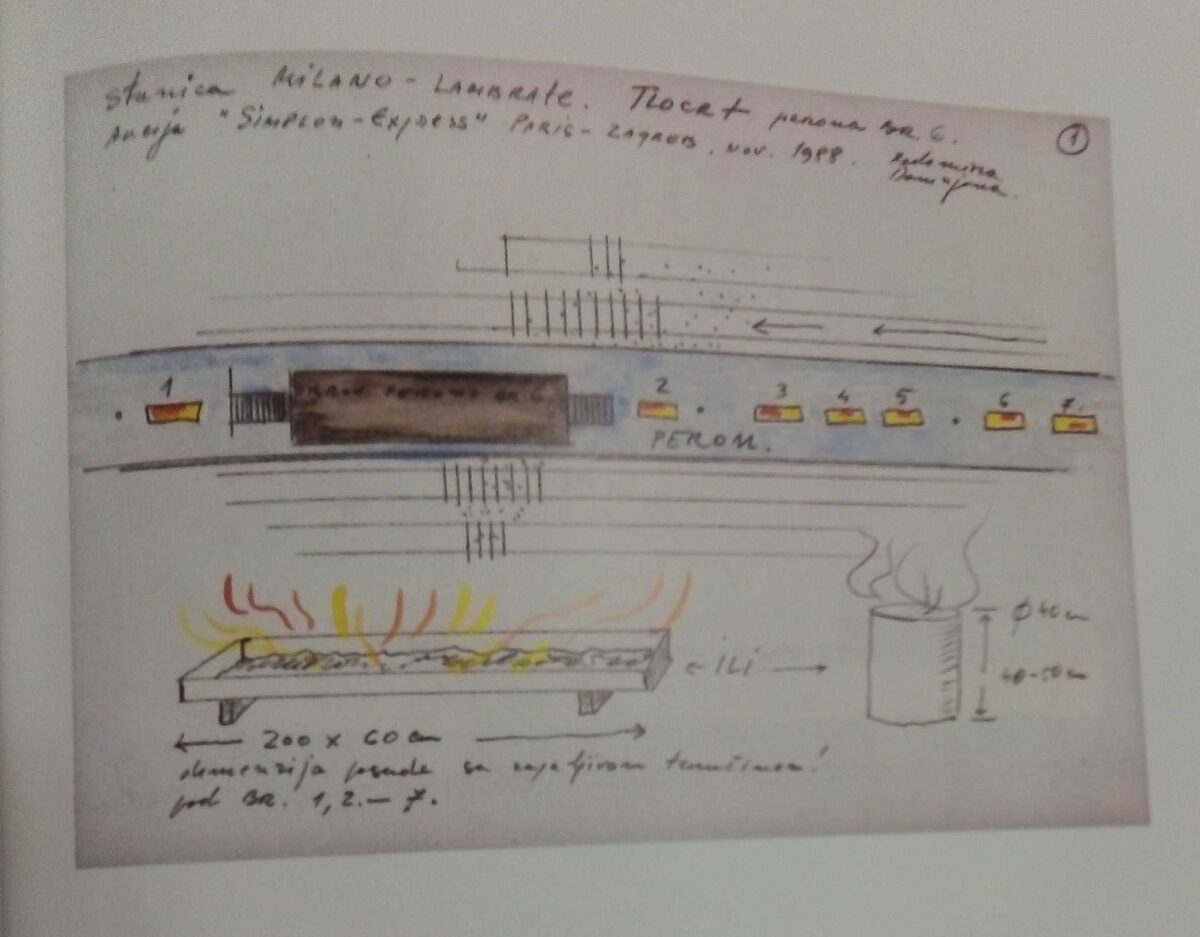 Stanica MILANO - LAMBRATE. TLOCRT perona BR. 6.
AKCIJA "SIMPLON-EXPRESS" PARIS - ZAGREB, NOV. 1988.
Radomira
Damnjana.
1
1
KROV PERONA BR 6.
2
3
4
5
6
7.
PERON.
← ILI →
φ 40 cm
40-50 cm
200 x 60 cm
dimenzija posuda sa zapaljivom tečnošću!
pod BR. 1, 2. — 7.